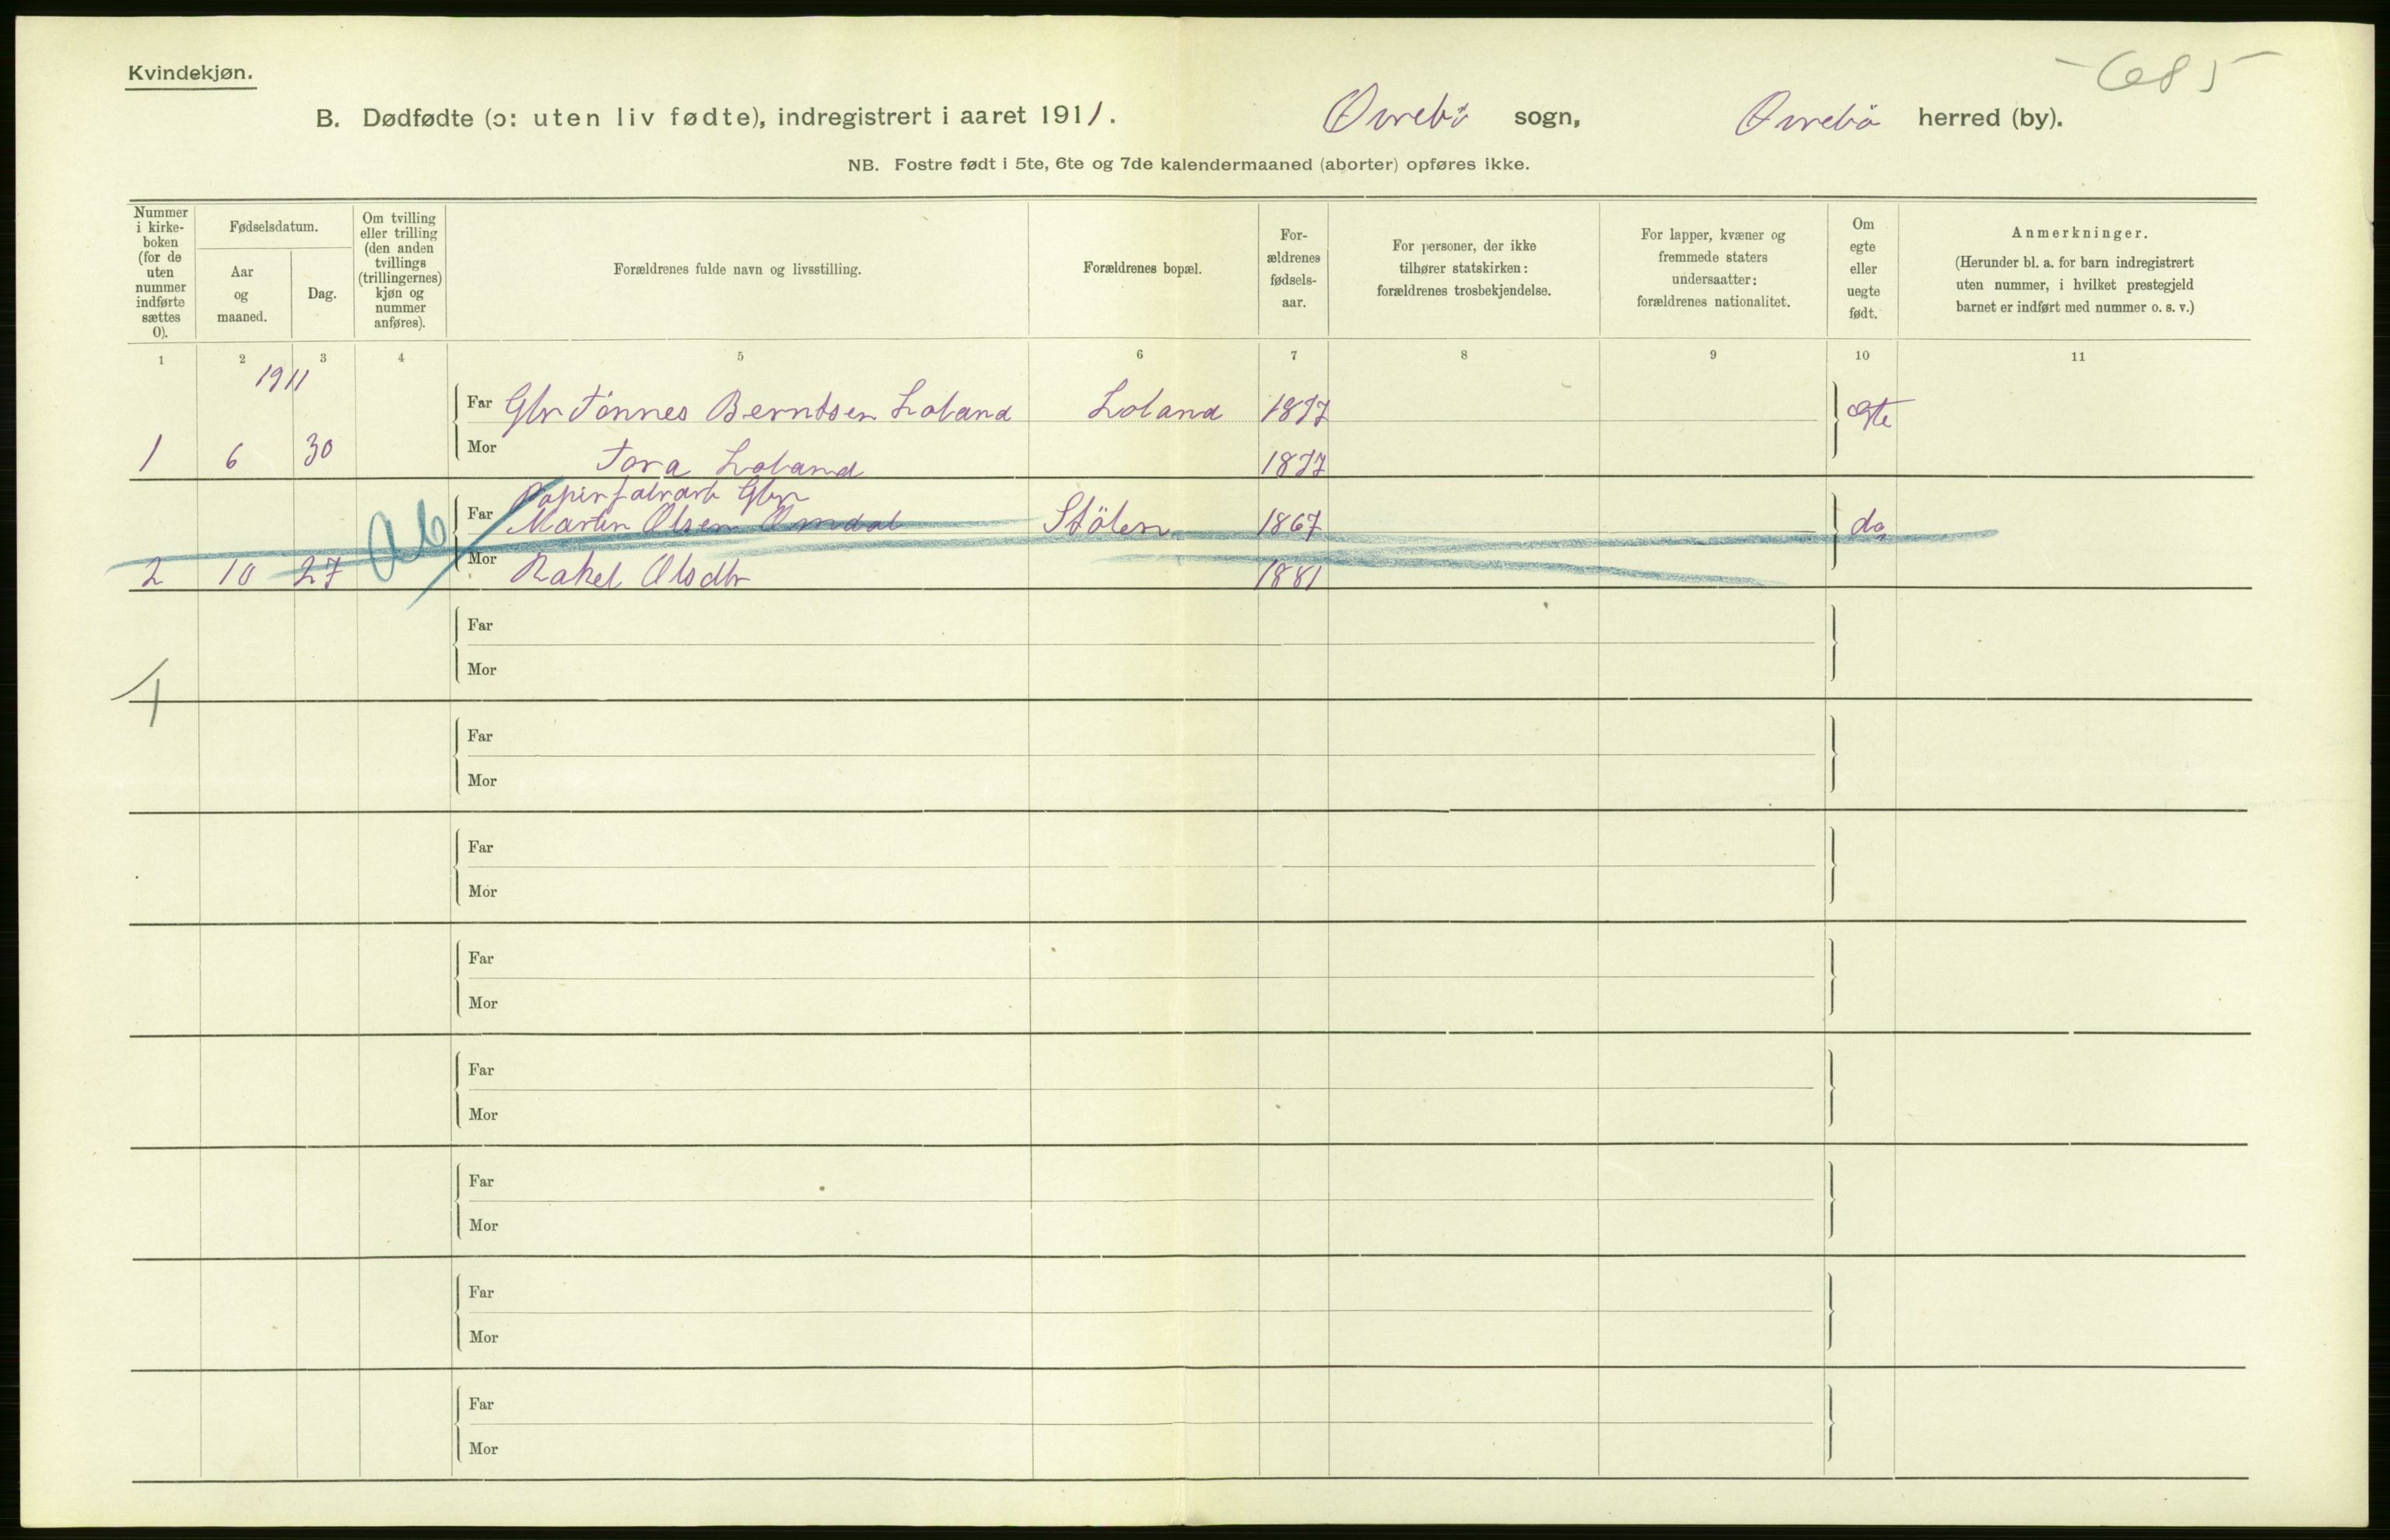 Kvindekjøn.
685
B. Dødfødte (ɔ: uten liv fødte), indregistrert i aaret 1911. Øvrebö sogn, Øvrebö herred (by).
NB. Fostre født i 5te, 6te og 7de kalendermaaned (aborter) opføres ikke.
Nummer i kirke-boken (for de uten nummer indførte sættes 0).
Fødselsdatum.
Aar og maaned.
Dag.
Om tvilling eller trilling (den anden tvillings (trillingernes) kjøn og nummer anføres).
Forældrenes fulde navn og livsstilling.
Forældrenes bopæl.
For-ældrenes fødsels-aar.
For personer, der ikke tilhører statskirken: forældrenes trosbekjendelse.
For lapper, kvæner og fremmede staters undersaatter: forældrenes nationalitet.
Om egte eller uegte født.
Anmerkninger.
(Herunder bl. a. for barn indregistrert uten nummer, i hvilket prestegjeld barnet er indført med nummer o. s. v.)
1 2 3 4 5 6 7 8 9 10 11
1911
Far Gbr Tönnes Berntsen Loland Loland 1877 egte
1 6 30 Mor Tora Loland 1877
Papirfabrarb Gbr
Ab Far Martin Olsen Omdal Stölen 1867 do
2 10 27 Mor Rakel Olsdtr 1881
Far
Mor
1
Far
Mor
Far
Mor
Far
Mor
Far
Mor
Far
Mor
Far
Mor
Far
Mor